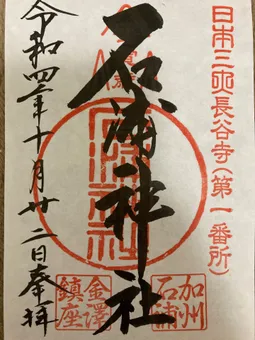 日本三大長谷寺(第一番所)
石浦神社
石浦神社
加州
石浦
金澤
鎮座
令和四年十月廿二日奉拝